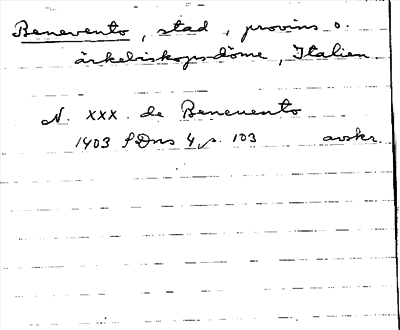 Benevento, stad, provins o.
ärkebiskopsdöme, Italien
N. xxx. de Beneuento
1403 SDns 4, s. 103 avskr.